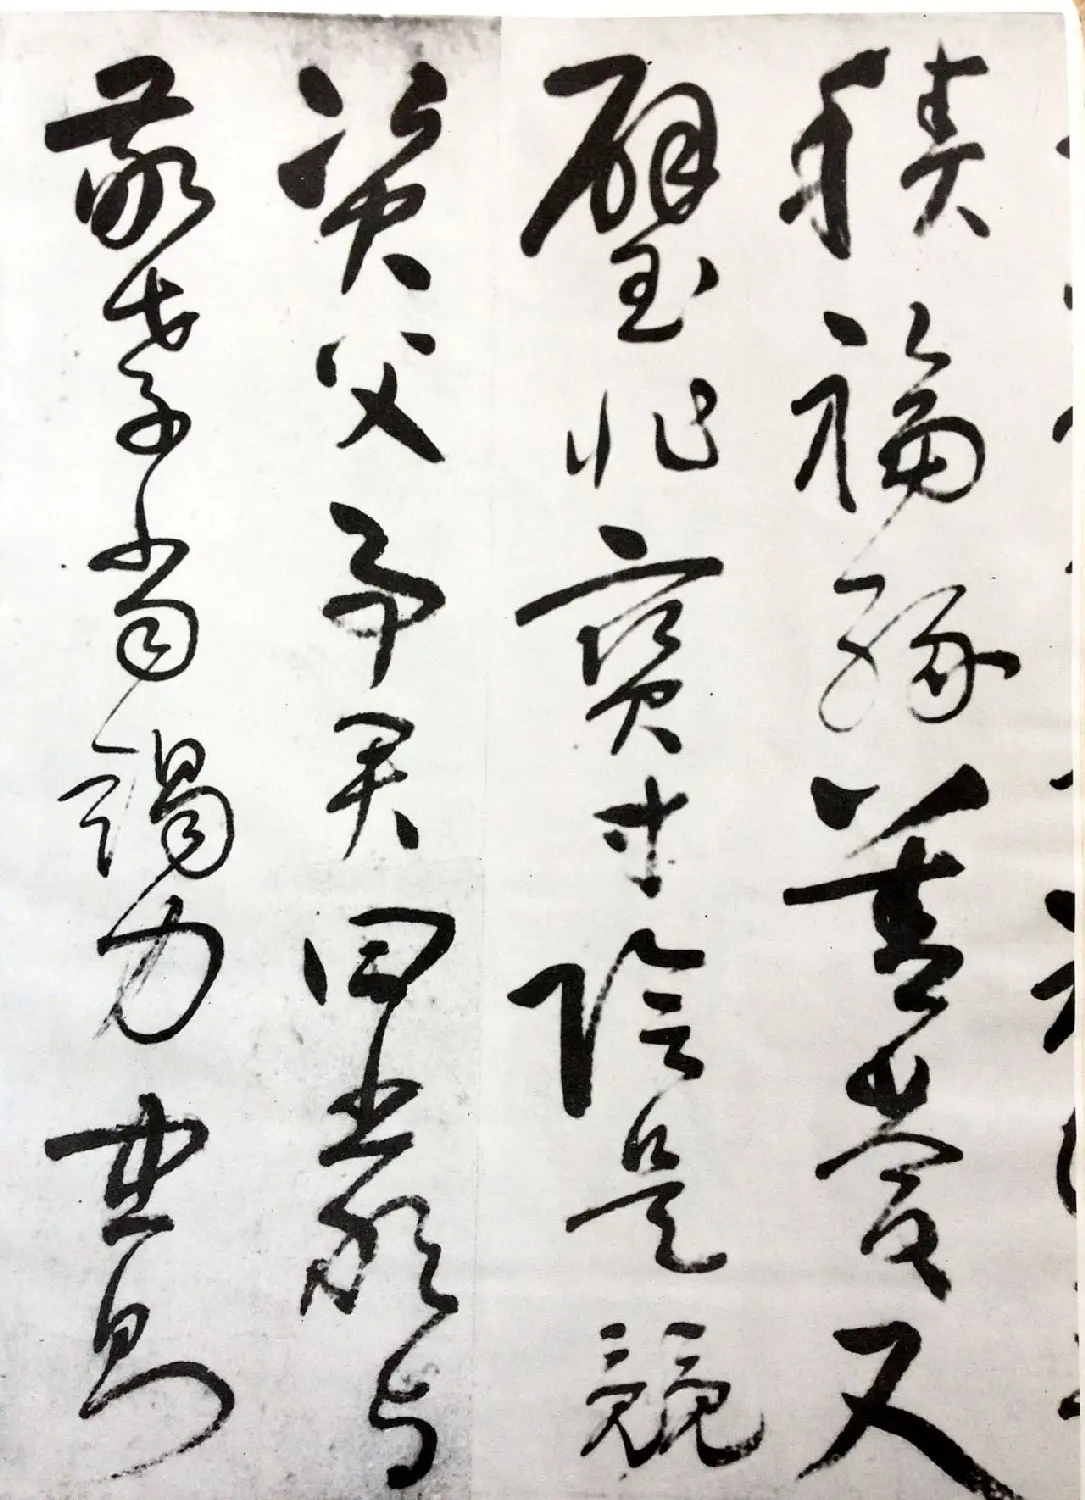 積福緣善慶尺
璧非寶寸陰是競
資父事君曰嚴與
敬孝當竭力忠則